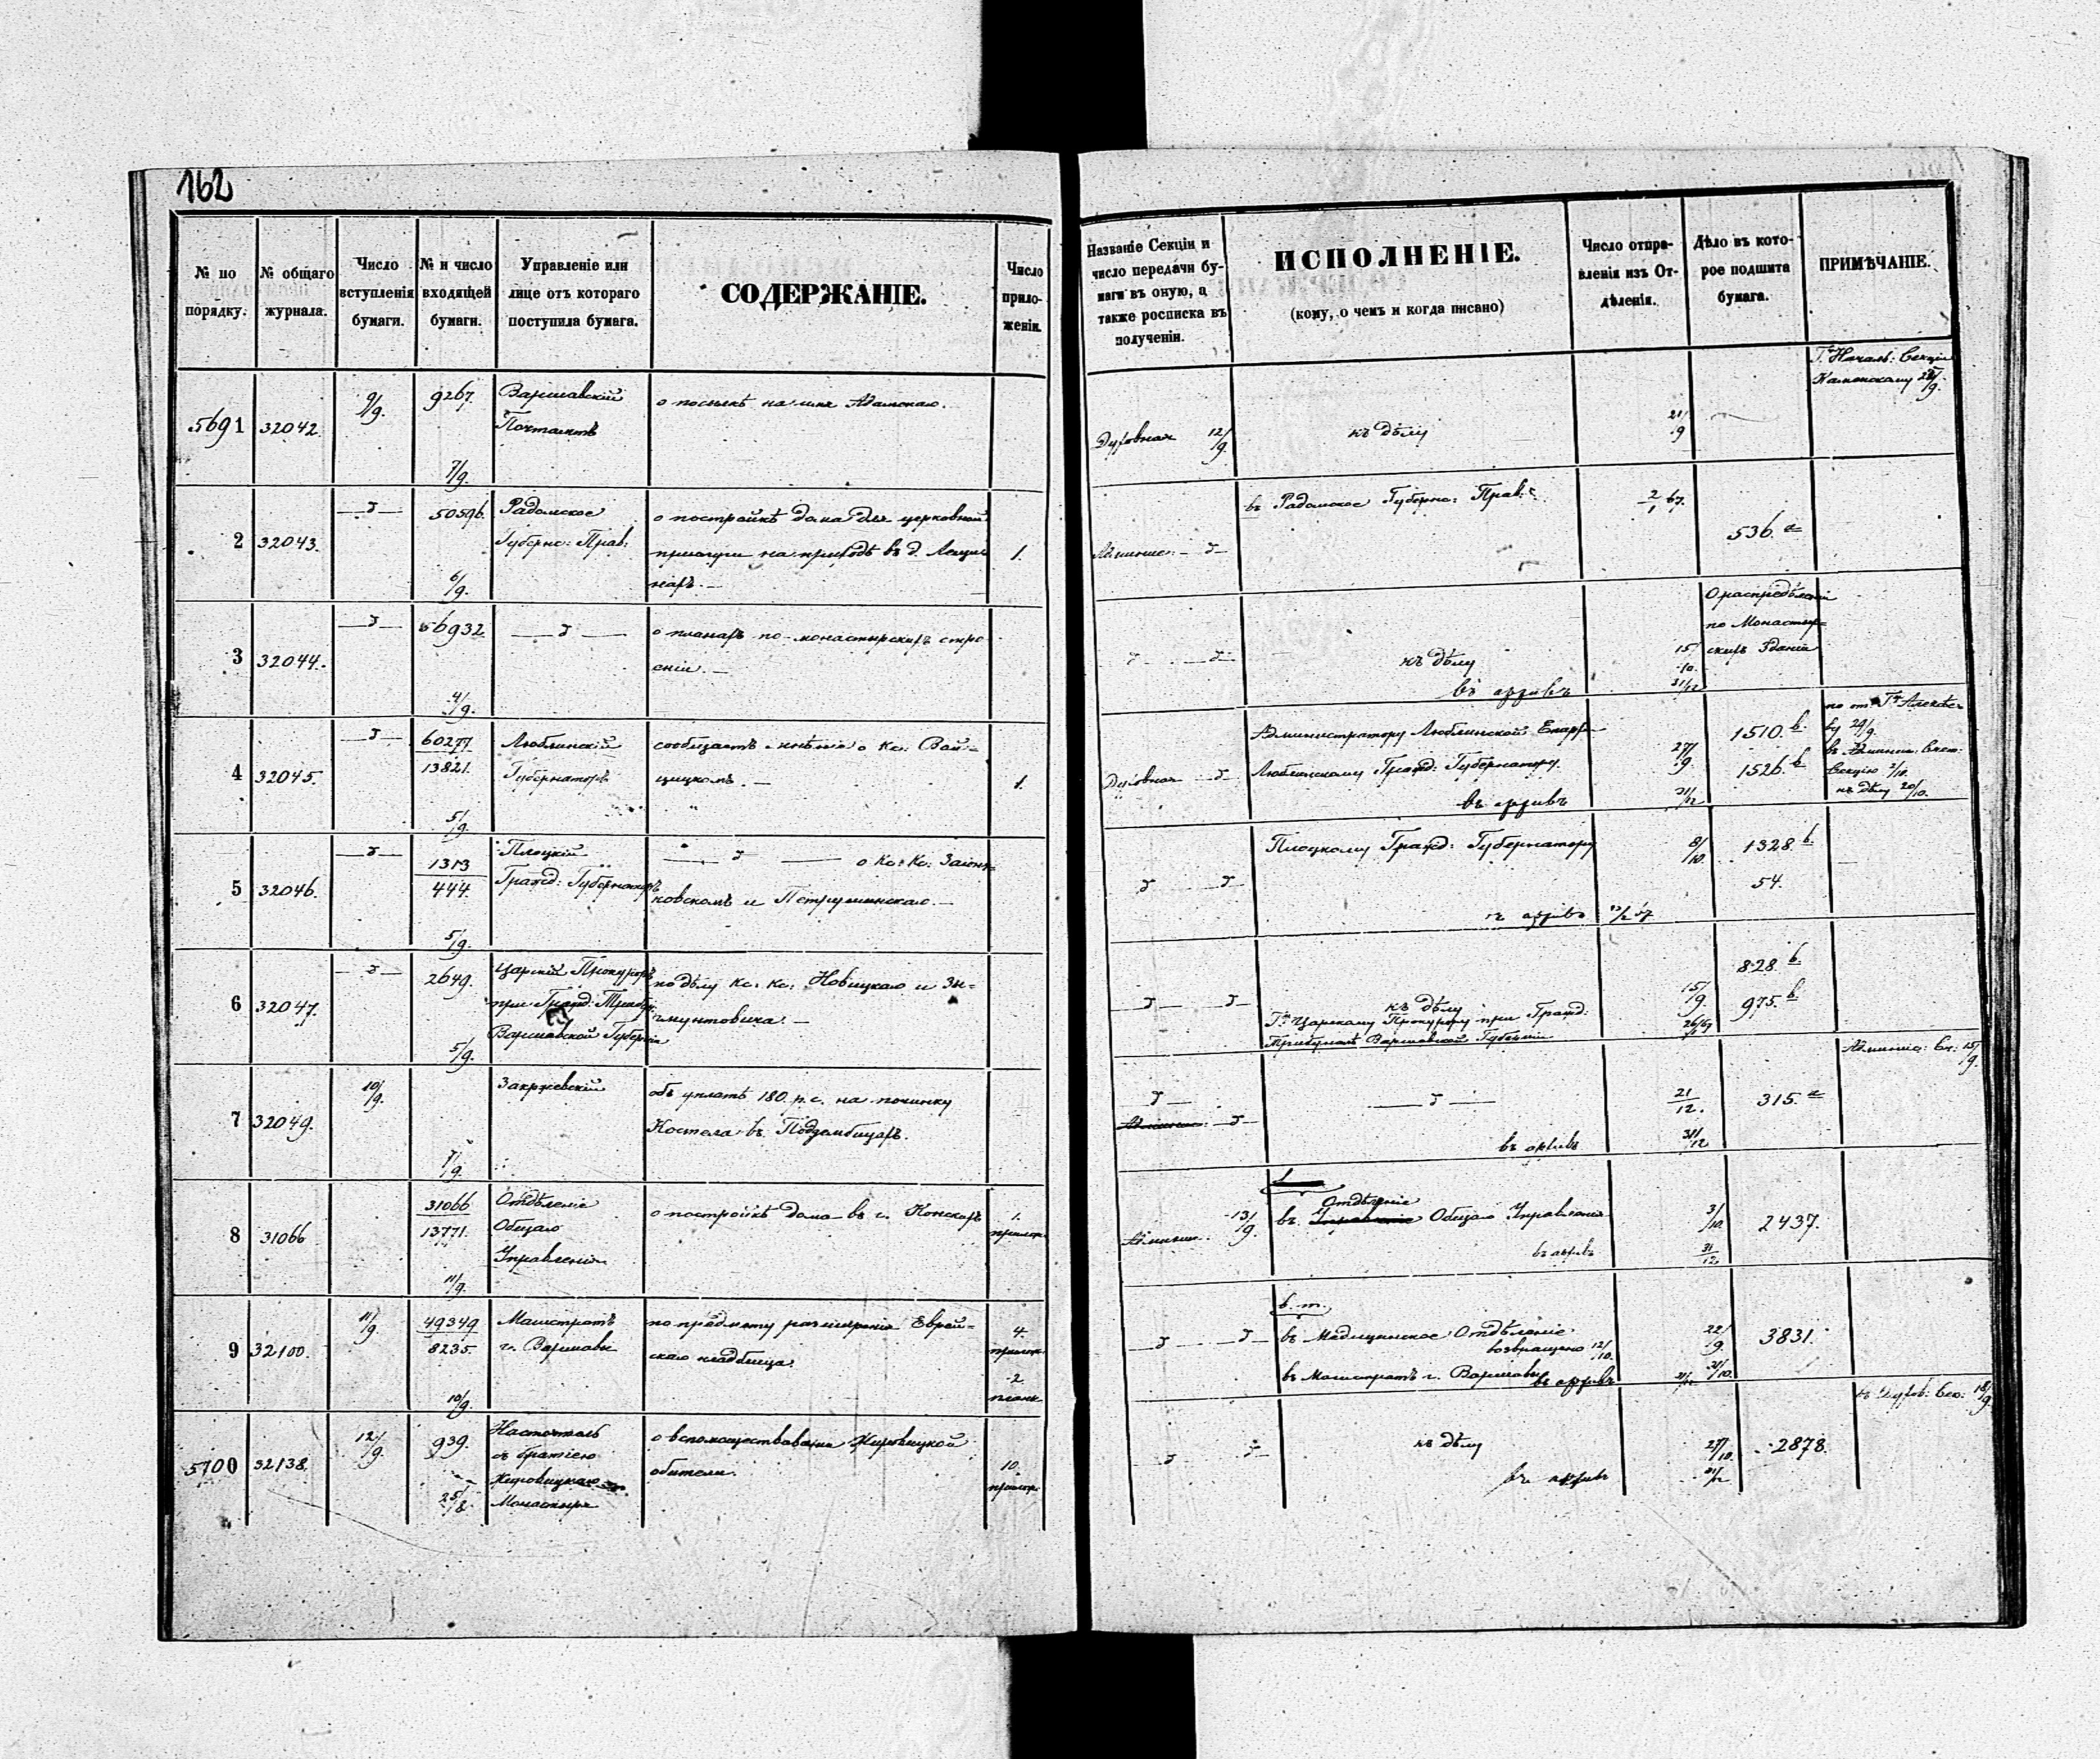 162
№ по порядку.
№ общаго журнала.
Число вступленія бумаги.
№ и число входящей бумаги.
Управленіе или лице отъ котораго поступила бумага.
СОДЕРЖАНІЕ.
Число приложеніи.
5691
32042
9/9.
9267.
7/9.
Варшавскій
Почтамтъ
о посылкѣ на имя Адамскаго.
2
32043.
50596.
6/9.
Радомское
Губернс: Прав:
о постройкѣ дома для церковной
прислуги на приходѣ в д.
1.
3
32044.
56932
4/9.
о планахъ по монастырскихъ строе
ніи.
4
32045.
60277
13821.
5/9.
Люблинскій
Губернаторъ
сообщаетъ мнѣніе о Кс: Вой-
цицкомъ.
1.
5
32046.
1313
444.
5/9.
Плоцкій
Гражд: Губернаторъ
о Кс: Кс:
ковскомъ и Петрушинскаго.
6
32047.
2649.
5/9.
Царскій Прокуроръ
при Гражд: Трибун:
Варшавской Губерніи
по дѣлу Кс: Кс: Новицкаго и Зы-
гмунтовича.
7
32049.
10/9.
7/9.
Закржевскій
объ уплатѣ 180 р. с. на починку
Костела въ Подзембицахъ.
8
31066
31066
13771.
11/9.
Отдѣленіе
Общаго
Управленія
о постройкѣ дома въ г. Конскахъ
1.
прилож.
9
32100.
11/9.
49349
8235.
10/9.
Магистратъ
г. Варшавы
по предмету расширенія Еврей-
скаго кладбища
4.
прилож.
2
план.
5700
32138.
12/9.
939.
25/8.
Настоятель
съ братіею
Жировицкаго
Монастыря
о вспомоществованіи Жировицкой
обители.
10.
прилож.
Названіе Секціи и число передачи бумаги въ оную, а также росписка въ полученіи.
ИСПОЛНЕНІЕ.
(кому, о чемъ и когда писано)
Число отправленія изъ Отдѣленія.
Дѣло въ которое подшита бумага.
ПРИМѢЧАНІЕ.
Духовная 12/9.
къ дѣлу
21/9
Гну Началь: Секціи
Каменскому
въ Радомское Губернс: Прав:
2/1 67.
536. а
къ дѣлу
въ архивъ
15/10.
31/12
О распредѣленіи
по Монастыр=
скихъ Зданій
Духовная
Администратору Люблинской Епарх
Люблинскому Гражд: Губернатору.
въ архивъ
27/9.
31/12
1510. b.
1526. b
Секцію 2/10.
къ дѣлу 20/10.
Плоцкому Гражд: Губернатору
въ архивъ
8/10.
1328. b.
54.
къ дѣлу
Гну Царскому Прокурору при Гражд:
Трибуналѣ Варшавской Губерніи
15/9.
828. b.
975. b
въ архивъ
21/12.
31/12
315. а
13/9.
Отдѣленіе
въ Общаго Управленія
въ архивъ
3/10
31/12
2437.
въ Медицинское Отдѣленіе
возвращено 12/10.
въ Магистратъ г. Варшавы
въ архивъ
22/9.
3831.
къ дѣлу
въ архивъ
27/10.
31/12
2878.